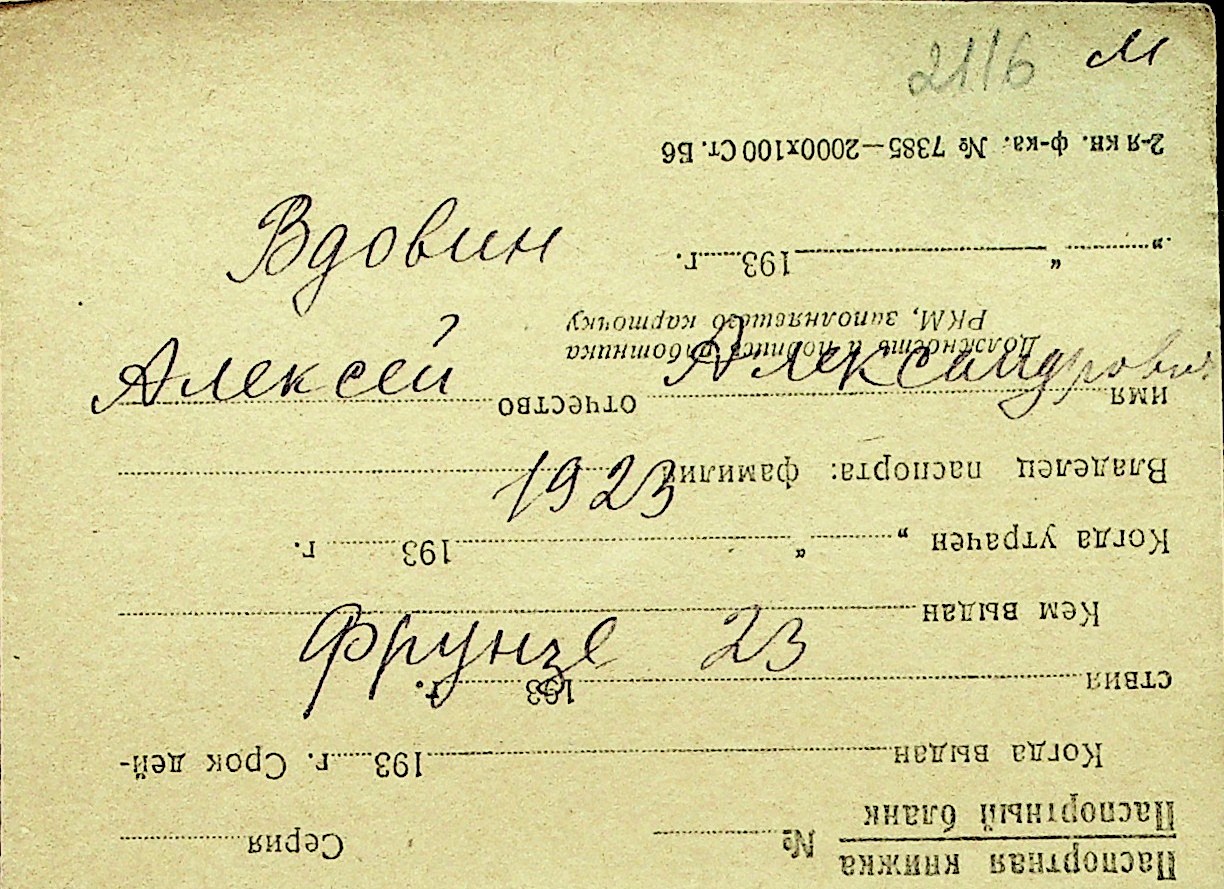 21/6 м
Вдовин
Алексей Александрович
1923
Фрунзе 23
Паспортная книжка
Паспортный бланк № Серия
Когда выдан 193 г. Срок дей-
ствия 193 г.
Кем выдан
Когда утрачен „ “ 193 г.
Владелец паспорта: фамилия
имя отчество
Должность и подпись работника
РКМ, заполнявшего карточку
„ “ 193 г.
2-я кн. ф-ка. № 7385—2000х100 Ст. Б6